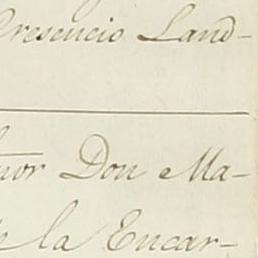 Cresencio Land-
nor Don Ma-
de la Encar-